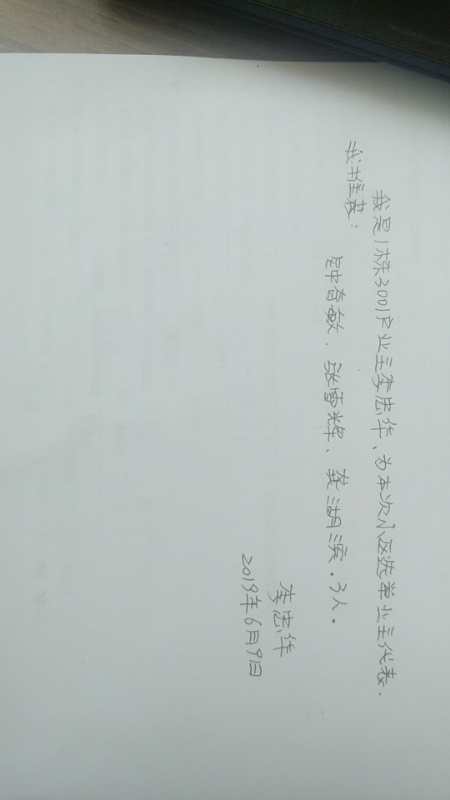 我是1栋3001户业主李忠华、为本次小区选举业主代表.
我推荐:
钟春敏、张雪辉、龚湖滨。3人。
李忠华
2019年6月9日